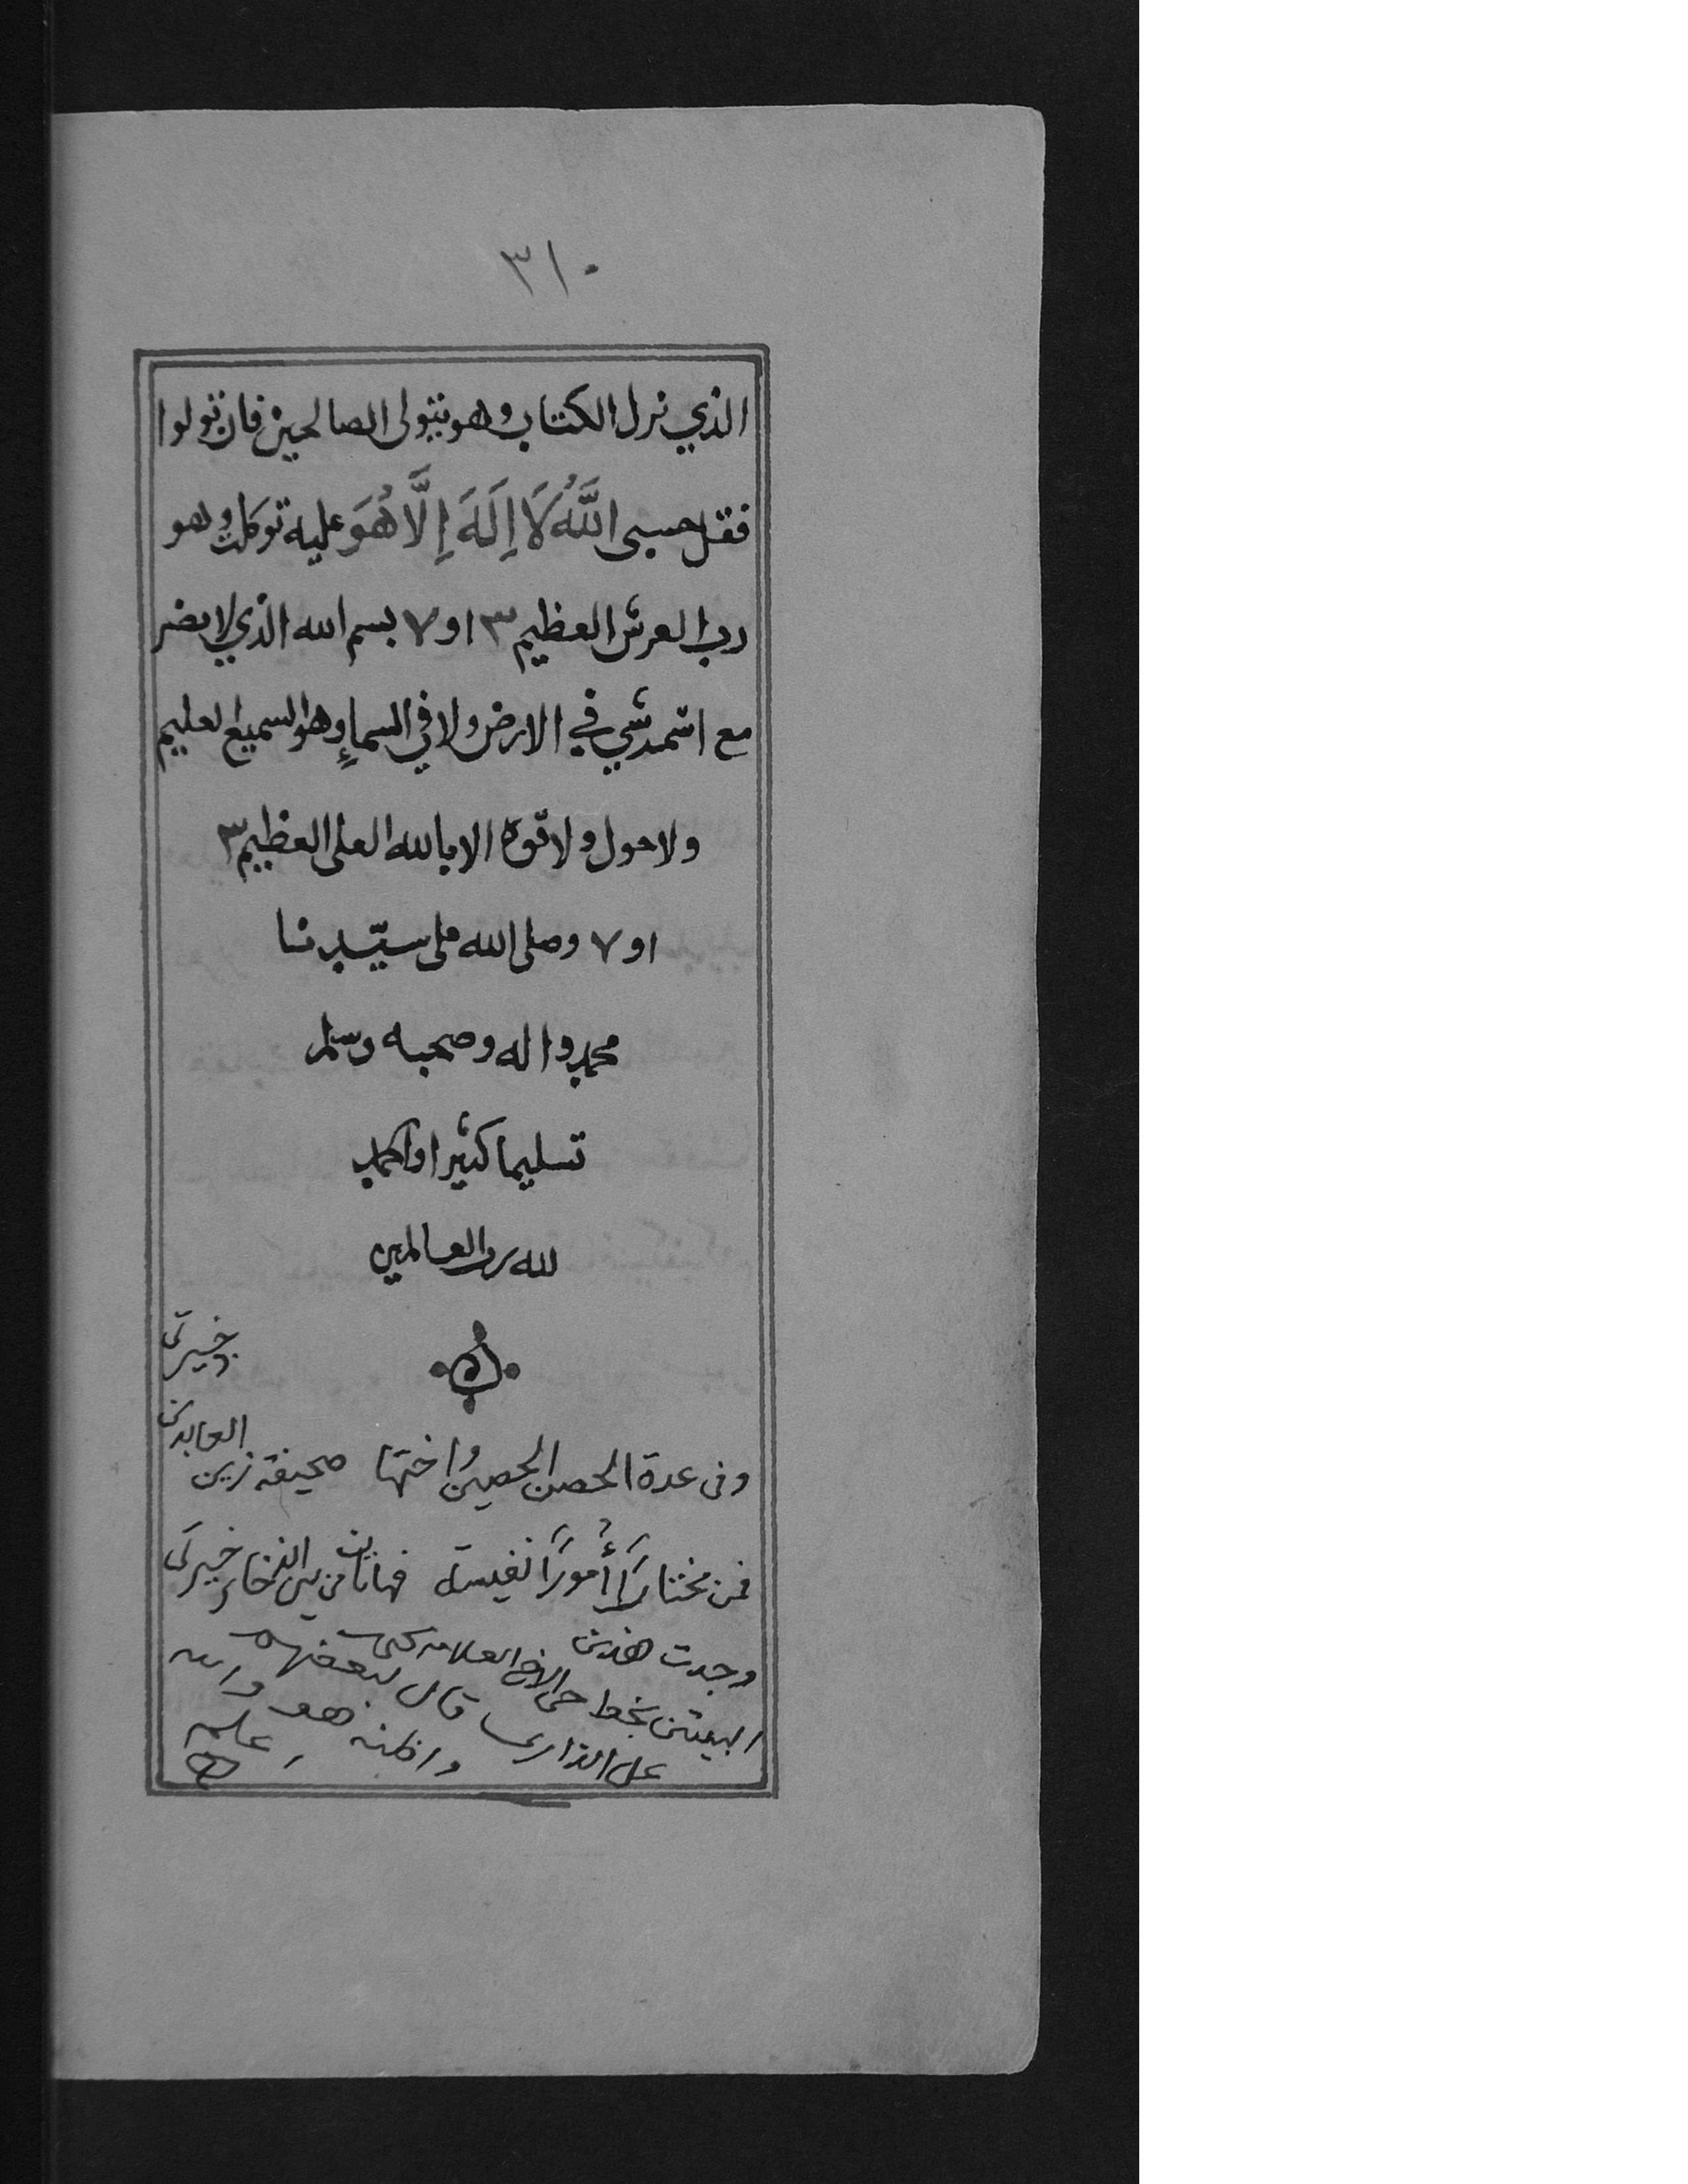 ٣١٠
الذي نزل الكتاب وهو يتولى الصالحين فان تولوا
فقل حسبى اللَّهُ لَا اِلَهَ اِلَّا هُوَ عليه توكلت وهو
رب العرش العظيم ٣ او ٧ بسم الله الذي لا يضر
مع اسمه شي في الارض ولا في السماء وهو السميع العليم
ولا حول ولا قوة الا بالله العلى العظيم ٣
او ٧ وصلى الله على سيّدنا
محمد واله وصحبه وسلم
تسليما كثيرا والحمد
لله رب العالمين
خيرتى
وفى عدة الحصن الحصين واختها صحيفة زين العابدين
فمن مختارًا أمورًا نفيسة فهاتان من بين الذخائر خيرتى
وجدت هذين
البيتين بخط الاخ العلامه قال لبعضهم
واظنه هو والله
اعلم